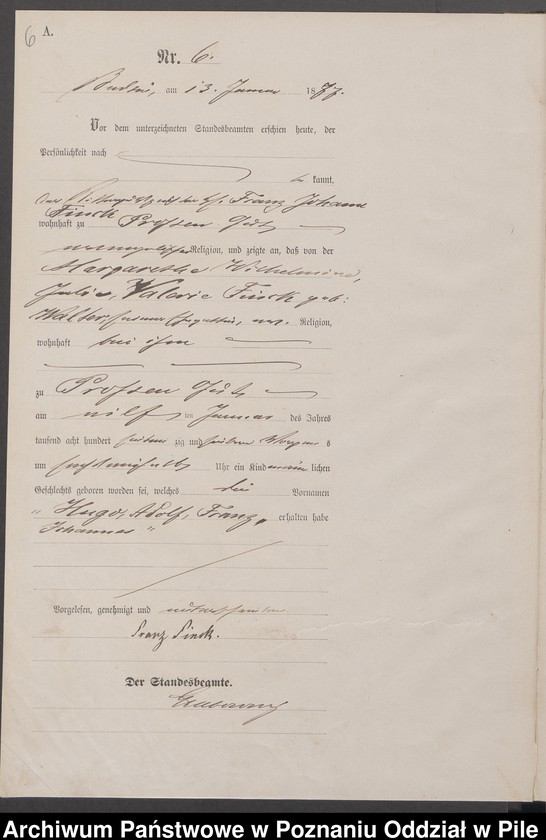 6
A.
Nr. 6.
Budsin, am 13. Januar 1877.
Vor dem unterzeichneten Standesbeamten erschien heute, der
Persönlichkeit nach
be kannt,
der Franz Johann
Finck
wohnhaft zu Prossen Gut
evangelischer Religion, und zeigte an, daß von der
Margarethe Wilhelmine,
Julie, Valerie Finck geb:
Walter, seiner Ehegattin, ev. Religion,
wohnhaft bei ihm
zu Prossen Gut
am eilf ten Januar des Jahres
tausend acht hundert siebenzig und sieben Morgens
um Uhr ein Kind männlichen
Geschlechts geboren worden sei, welches die Vornamen
„Hugo, Adolf, Franz, erhalten habe
Johannes"
Vorgelesen, genehmigt und unterschrieben
Franz Finck.
Der Standesbeamte.
Archiwum Państwowe w Poznaniu Oddział w Pile